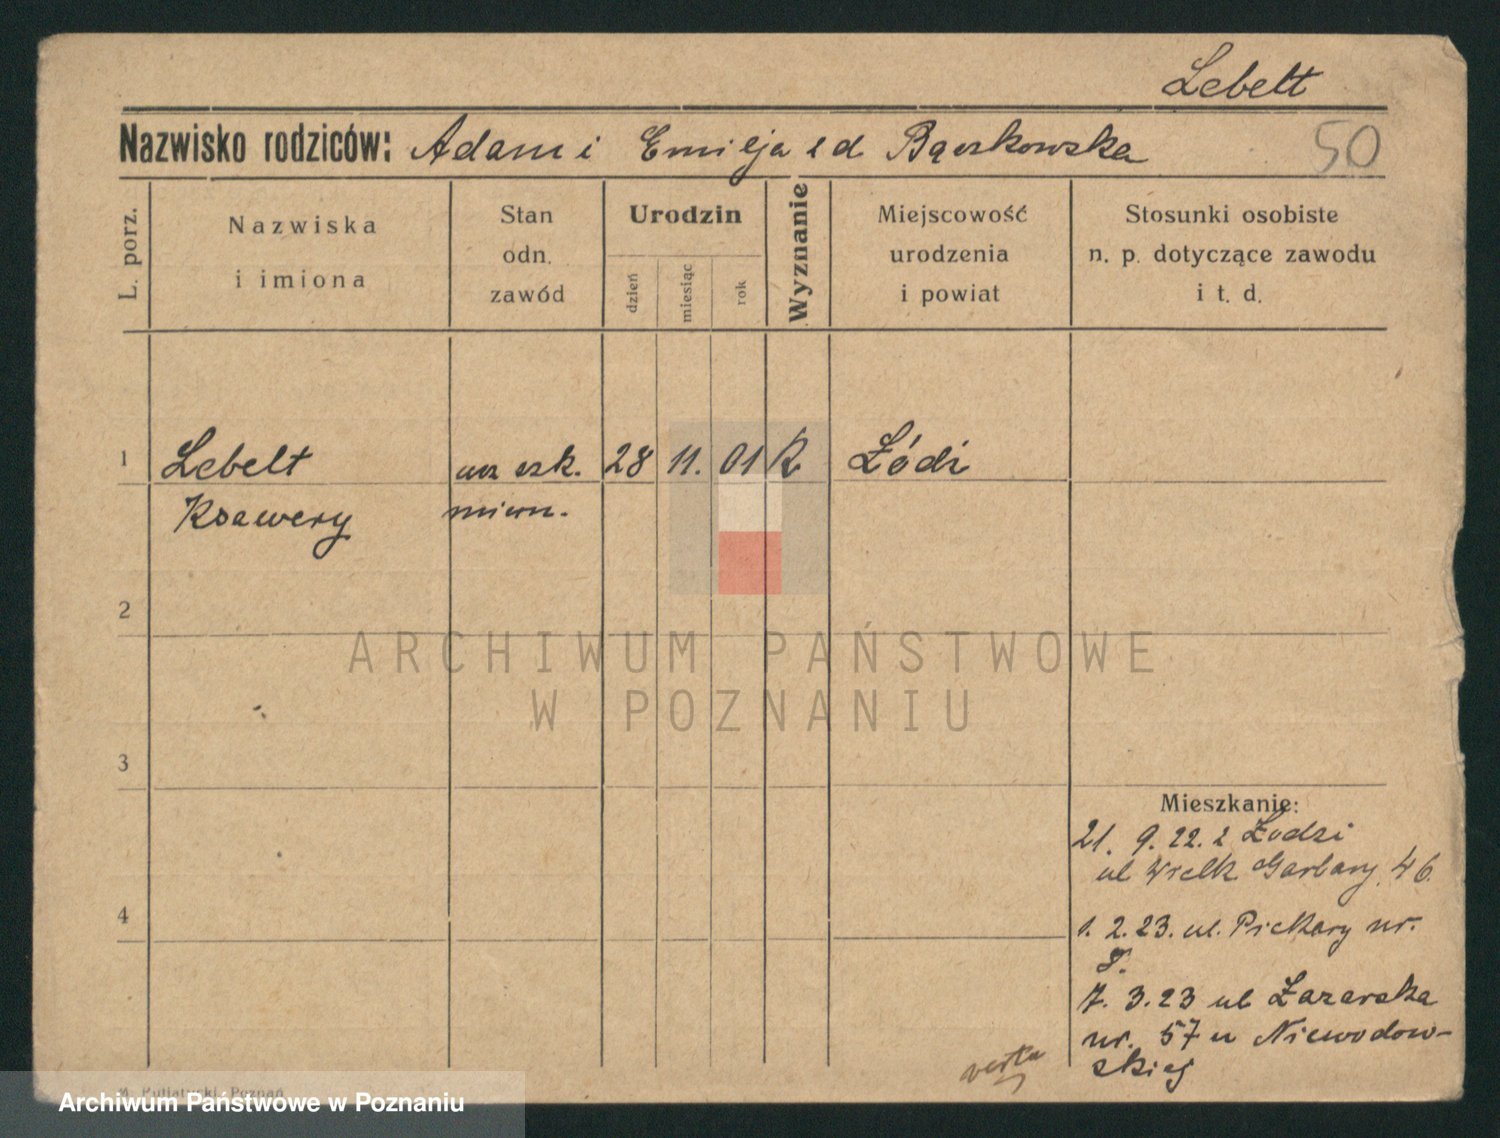 Lebelt
Nazwisko rodziców: Adam i Emilja z d Bączkowska
50
L. porz.
Nazwiska
i imiona
Stan
odn.
zawód
Urodzin
dzień
miesiąc
rok
Wyznanie
Miejscowość
urodzenia
i powiat
Stosunki osobiste
n. p. dotyczące zawodu
i t. d.
1 Lebelt ucz szk. 28 11. 01 K Łódź
Ksawery
2
ARCHIWUM PAŃSTWOWE
W POZNANIU
3
Mieszkanie:
21. 9. 22. z Łodzi
ul Wielk Garbary 46.
4
1. 2. 23. ul. Piekary nr.
8.
7. 3. 23 ul Łazarska
nr. 57 u Niewodow-
skiej
verta
Putiatycki, Poznań
Archiwum Państwowe w Poznaniu